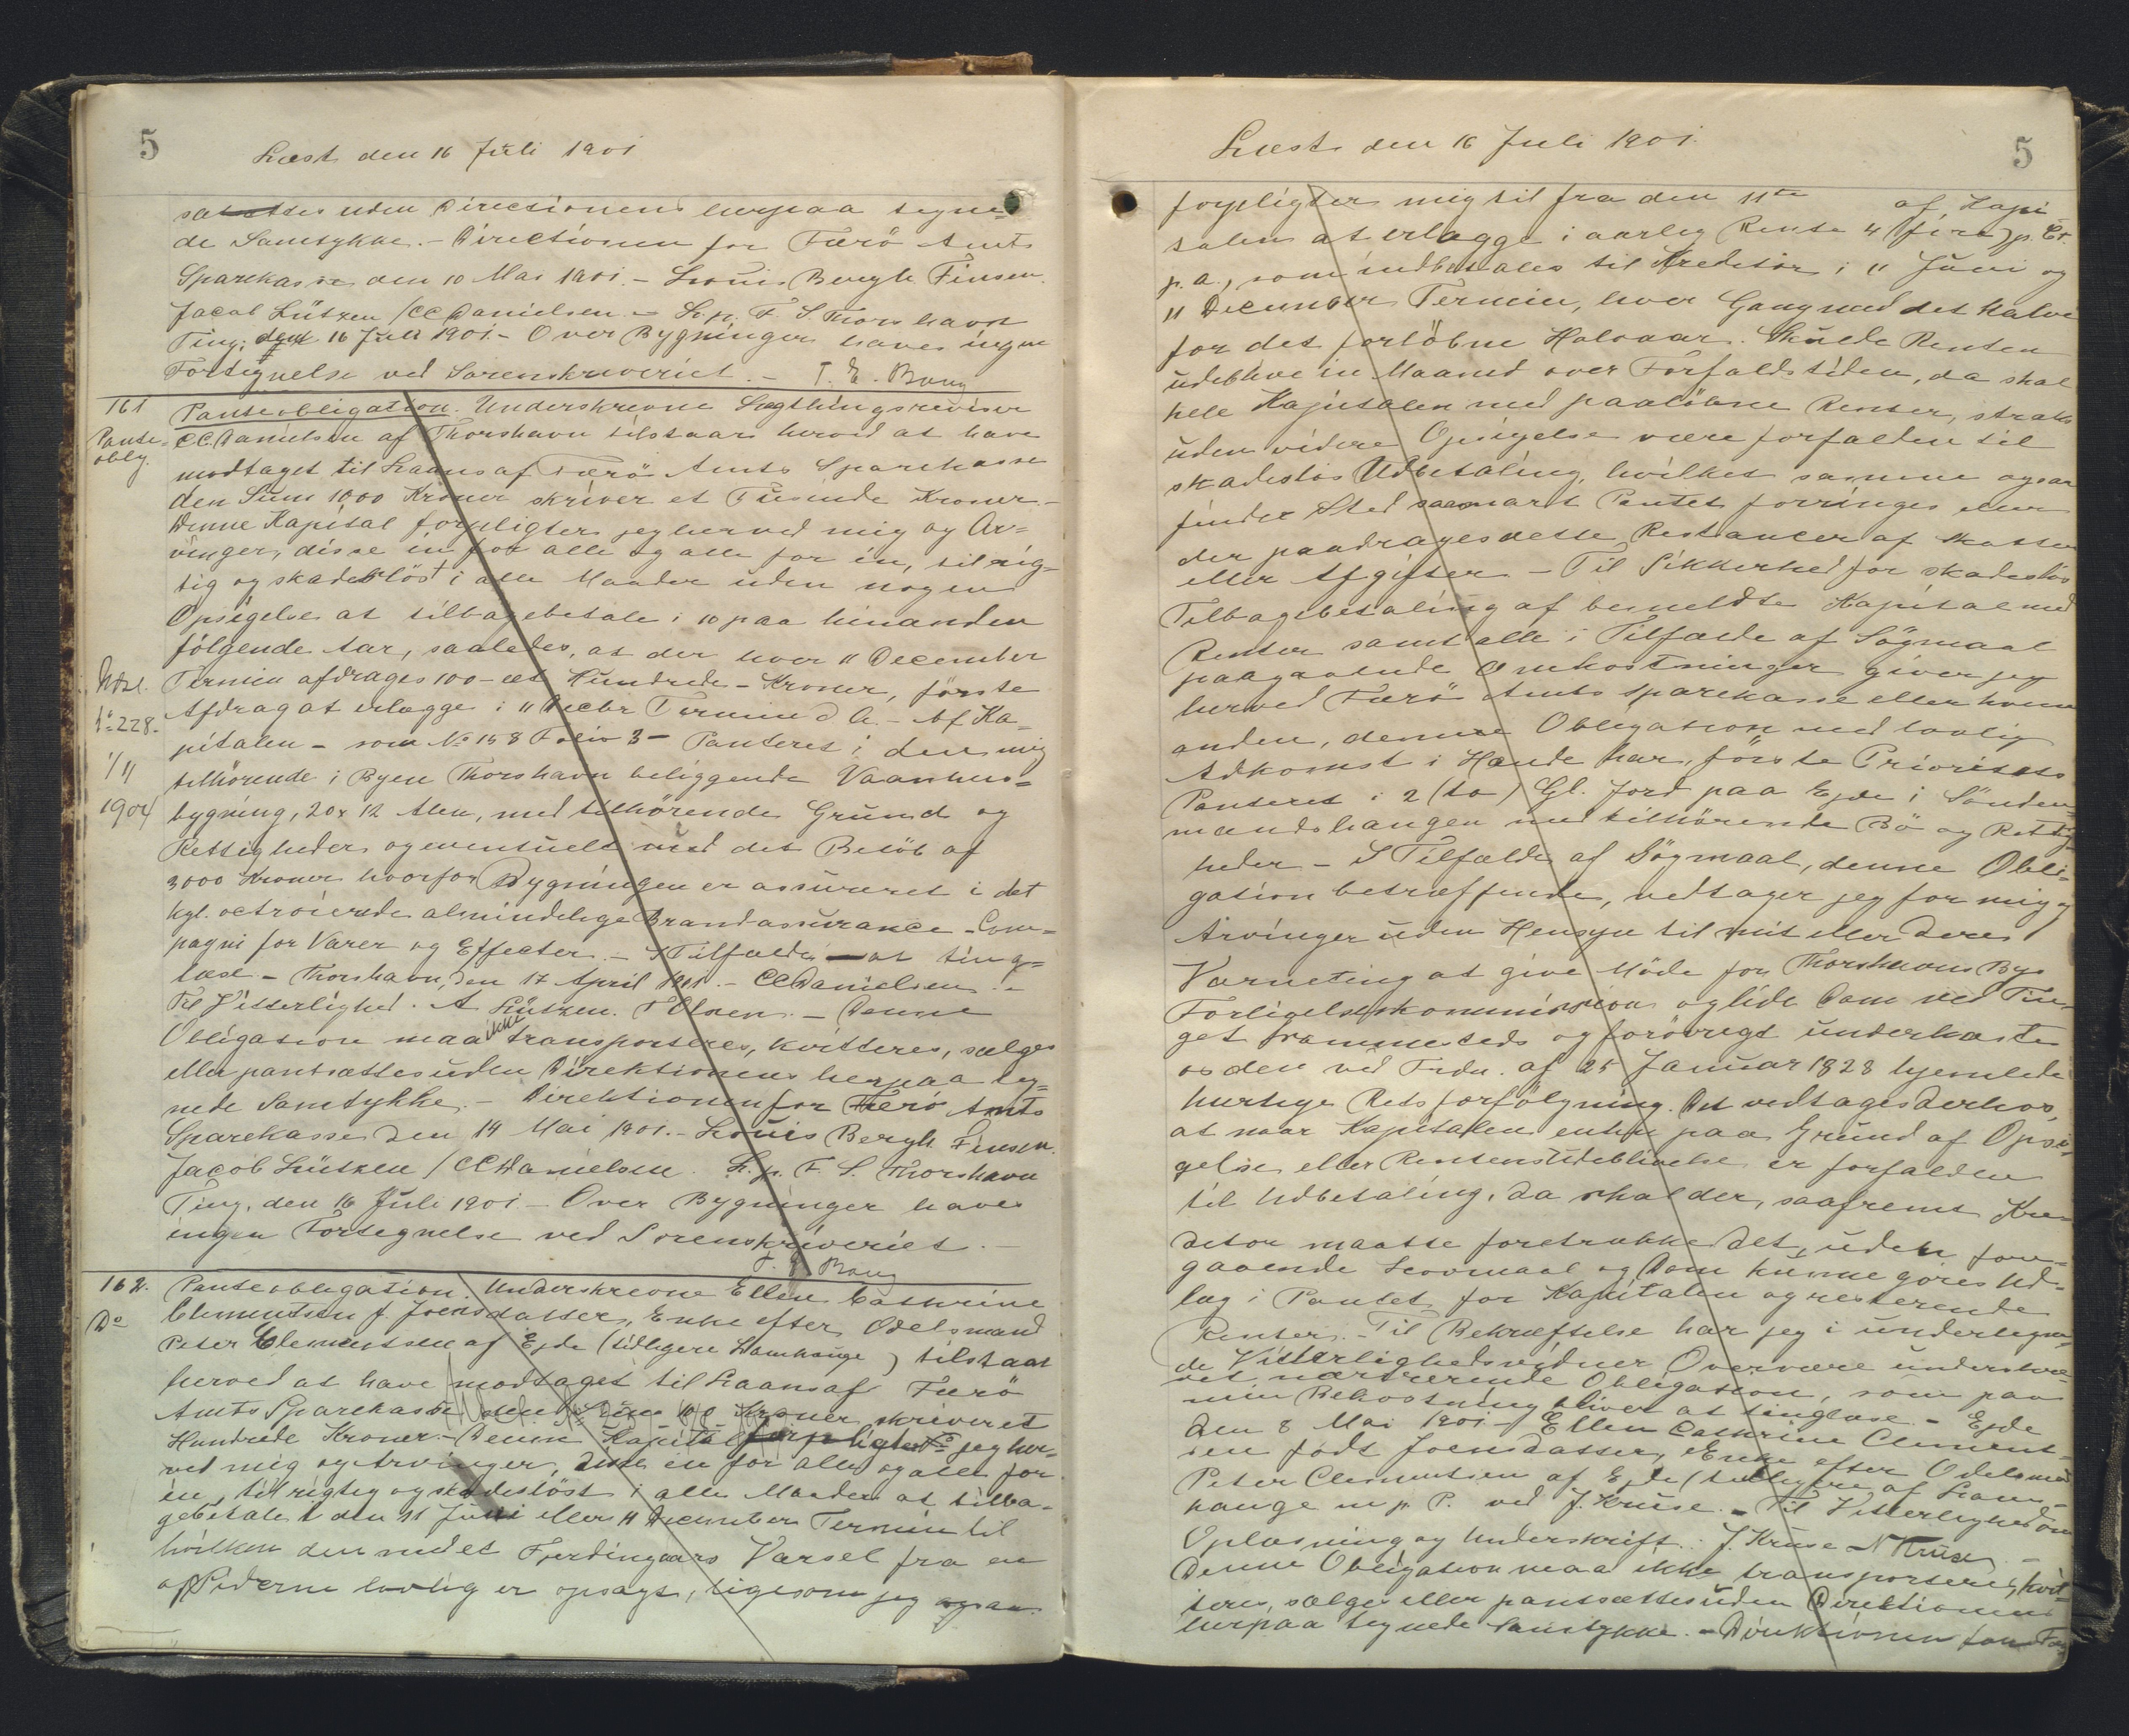 5
Læst den 16 Juli 1901
satættes uden Directionens herpaa tegne=
de Samtykke. - Directionen for Færö Amts
Sparekasse den 10 Mai 1901. - Louis Bergh Finsen.
Jacob Lützen / CC Danielsen. - L. p. F. S. Thorshavn
Ting, den 16 Juli 1901. - Over Bygninger haves ingen
Fortegnelse ved Sorenskriveriet. - T. E. Bang
161
Pante=
oblg.
Panteobligation. Underskrevne Lagthingsrevisor
C.C. Danielsen af Thorshavn tilstaar herved at have
modtaget til Laans af Færö Amts Sparekasse
den Sum 1000 Kroner skriver et Tusinde Kroner. -
Denne Kapital forpligter jeg herved mig og Ar=
vinger, disse en for alle og alle for en, til rig=
tig og skadeslöst i alle Maader uden nogen
Opsigelse at tilbagebetale i 10 paa hinanden
fölgende Aar, saaledes, at der hver 11 December
Termin afdrages 100 - et Hundrede - Kroner, förste
Afdrag at erlægge i 11 Decbr Termin d. A. - Af Ka=
pitalen - som No 158 Folio 3 - Panteret i den mig
tilhörende i Byen Thorshavn beliggende Vaanhus=
bygning, 20 x 12 Alen, med tilhörende Grund og
Rettigheder og eventuelt med det Belöb af
3000 Kroner hvorfor Bygningen er assureret i det
kgl. octroierede almindelige Brandassurance-Com=
pagni for Varer og Effecter. - I Tilfælde at ting=
læse. - Thorshavn, den 17 April 1901. - CC Danielsen. -
Til Vitterlighed. A Lützen. T Olsen. - Denne
Obligation maa ikke transporteres, kvitteres, sælges
eller pantsættes uden Direktionens herpaa teg=
nede Samtykke. - Direktionen for Færö Amts
Sparekasse den 14 Mai 1901. - Louis Bergh Finsen.
Jacob Lützen / CC Danielsen. L. p. F. S. Thorshavn
Ting, den 16 Juli 1901 - Over Bygninger haves
ingen Fortegnelse ved Sorenskriveriet. -
T. E. Bang
Udsl.
No 228.
1/11
1904
162.
Do
Panteobligation. Underskrevne Ellen Cathrine
Clementsen f. Joensdatter, Enke efter Odelsmand
Peter Clementsen af Ejde (tidligere Lamhauge) tilstaar
herved at have modtaget til Laans af Færö
Amts Sparekasse den Sum 100 Kroner skriver et
Hundrede Kroner. - Denne Kapital forpligter jeg her=
ved mig og Arvinger, disse en for alle og alle for
en, til rigtig og skadeslöst i alle Maader at tilba=
gebetale i den 11 Juni eller 11 December Termin til
hvilken den med et Fjerdingaars Varsel fra en
af Siderne lovlig er opsagt, ligesom jeg ogsaa
5
Læst den 16 Juli 1901.
forpligter mig til fra den 11te af Kapi
talen at erlægge i aarlig Rente 4 (fire) p. Ct.
p. a., som indbetales til Kreditor i 11 Juni og
11 December Termin, hver Gang med det halve
for det forlöbne Halvaar. Skulde Renten
udeblive en Maaned over Forfaldstiden, da skal
hele Kapitalen med paalöbne Renter, straks
uden videre Opsigelse være forfalden til
skadeslös Udbetaling, hvilket samme ogsaa
finder Sted saasnart Pantet forringes eller
der paadrages dette Restancer af Skatter
eller Afgifter. - Til Sikkerhed for skadeslös
Tilbagebetaling af bemeldte Kapital med
Renter samt alle i Tilfælde af Sögmaal
paagaaende Omkostninger giver jeg
herved Færö Amts Sparekasse eller hvem
anden, denne Obligation med lovlig
Adkomst i Hænde har, förste Prioritets
Panteret i 2 (to) Gl. Jord paa Ejde i Sönden=
mandshaugen med tilhörende Bö og Rettig
heder. - I Tilfælde af Sögmaal, denne Obli=
gation betræffende, vedtager jeg for mig og
Arvinger uden Hensyn til mit eller deres
Varneting at give Möde for Thorshavns Bys
Forligelseskommission og lide Dom ved Tin=
get sammesteds og forövrigt underkaste
os den ved Frdn. af 25 Januar 1828 hjemlede
hurtige Retsforfölgning. Det vedtages derhos,
at naar Kapitalen enten paa Grund af Opsi=
gelse eller Rentens Udeblivelse er forfalden
til Udbetaling, da skal der, saafremt Kre=
ditor maatte foretrække det, uden fore=
gaaende Lovmaal og Dom kunne göres Ud=
læg i Pantet for Kapitalen og resterende
Renter. - Til Bekræftelse har jeg i undertegne=
de Vitterlighedsvidner Overvære underskre=
vet nærværende Obligation, som paa
min Bekostning bliver at tinglæse. - Ejde
den 8 Mai 1901 - Ellen Cathrine Clement=
sen födt Joensdatter, Enke efter Odelsmand
Peter Clementsen af Ejde (tidligere af Lam=
hauge m. p. P. ved J. Kruse. - Til Vitterlighed om
Oplæsning og Underskrift: J. Kruse N Kruse. -
Denne Obligation maa ikke transporteres, kvit=
teres, sælges eller pantsættes uden Direktionens
herpaa tegnede Samtykke. - Direktionen for Fær